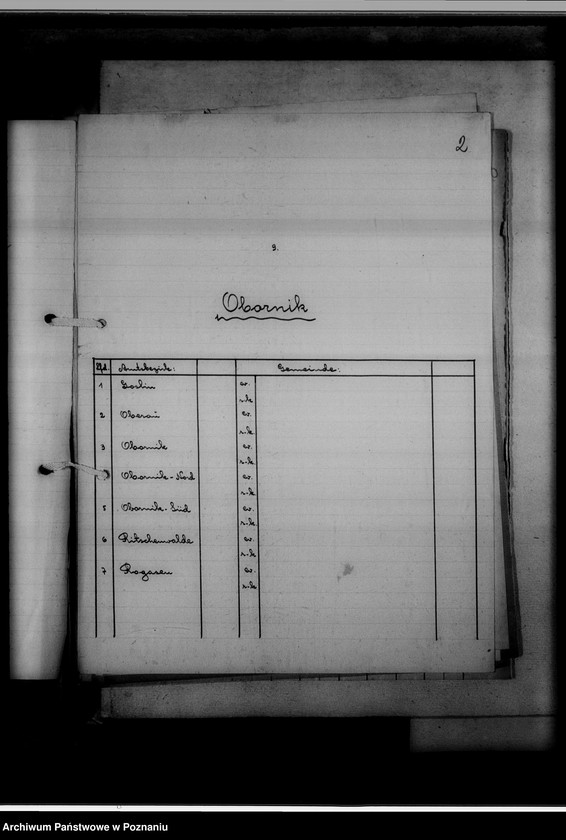 2
9.
Obornik
Lfd. Amtsbezirk: Gemeinde:
1 Goslin ev.
r.k.
2 ev.
r.k.
3 Obornik ev.
r.k.
Obornik-Nord ev.
r.k.
5 Obornik-Süd ev.
r.k.
6 Ritschenwalde ev.
r.k.
7 Rogasen ev.
r.k.
Archiwum Państwowe w Poznaniu